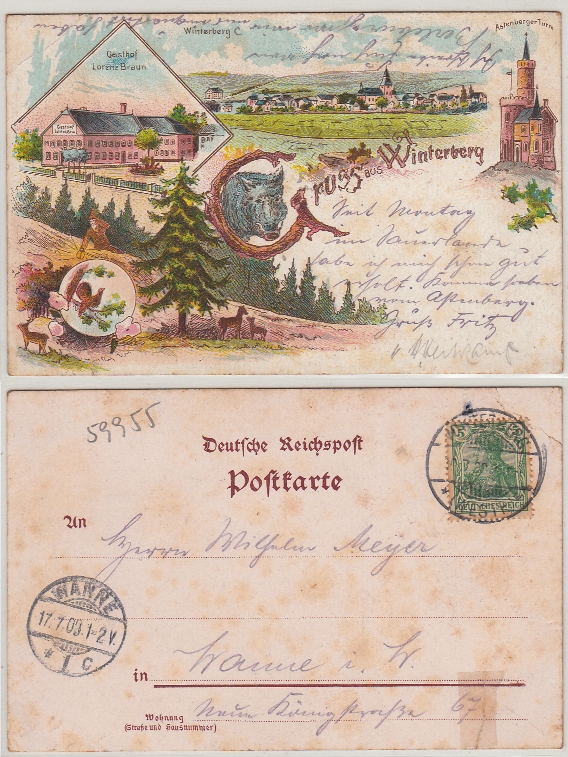 Winterberg
Astenberger Turm
Gasthof
Lorenz Braun
Gruss aus Winterberg
Seit Montag
im Sauerlande
habe ich mich schon gut
erholt. Komme eben
vom Astenberg.
Gruß Fritz
59955
Deutsche Reichspost
Postkarte
An
Herrn Wilhelm Meyer
WANNE
17.7.09.1-2V.
* 1 C
DEUTSCHES REICH
in Wanne i. W.
Wohnung
(Straße und Hausnummer)
Neue Königstraße 67